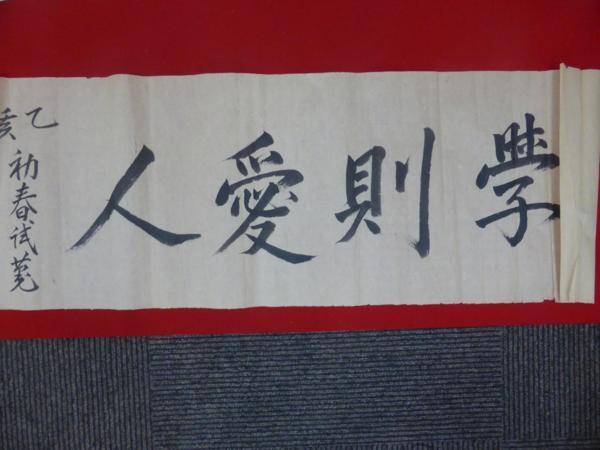 學則愛人
乙亥
初春試毫